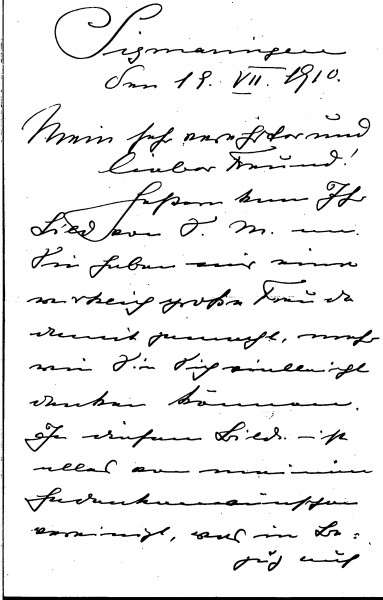 Sigmaringen
den 19. VII. 1910.
Mein sehr verehrter und
lieber Freund!
Gestern kam Ihr
Bild von S. M. an.
Sie haben mir eine
wirklich große Freude
damit gemacht, mehr
wie Sie Sich vielleicht
denken können.
In diesem Bilde ist
alles von meinen
Gedankenwünschen
vereinigt, was in Be=
zug auf